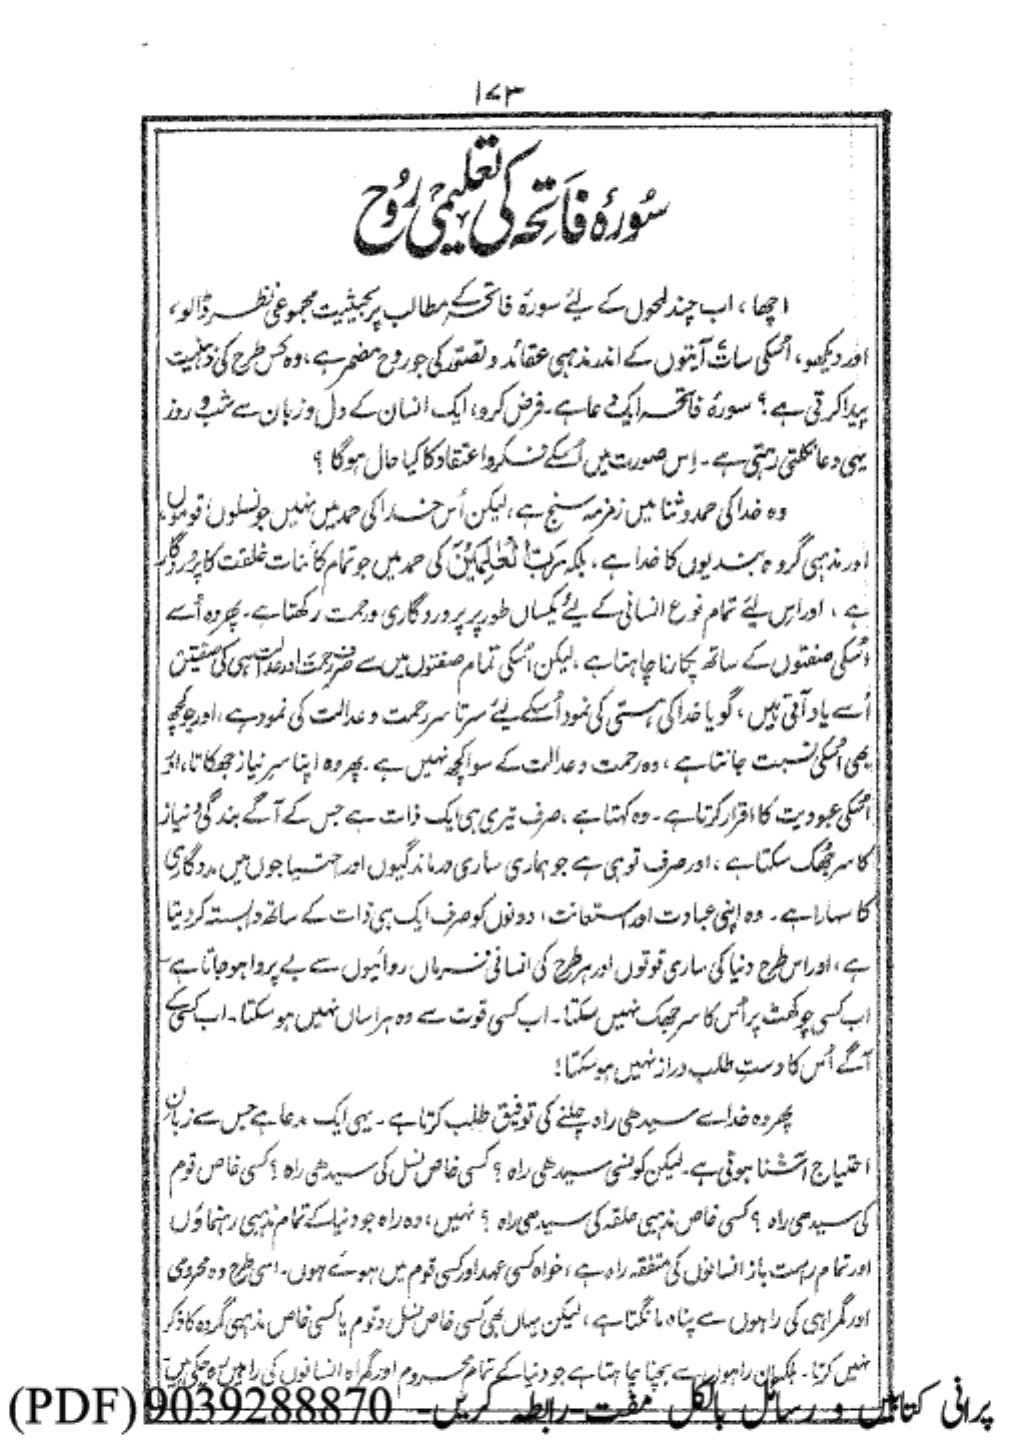 ۱۷۳
سُورۂ فَاتِحہ کی تعلیمی رُوح
اچھا، اب چند لمحوں کے لیے سورۂ فاتحہ کے مطالب پر بحیثیت مجموعی نظر ڈالو،
اور دیکھو، اُسکی سات آیتوں کے اندر مذہبی عقائد و تصور کی جو روح مضمر ہے، وہ کس طرح کی ذہنیت
پیدا کرتی ہے؟ سورۂ فاتحہ ایک دعا ہے۔ فرض کرو، ایک انسان کے دل و زبان سے شب و روز
یہی دعا نکلتی رہتی ہے۔ اِس صورت میں اُسکے فکر و اعتقاد کا کیا حال ہوگا؟
وہ خدا کی حمد و ثنا میں زمزمہ سنج ہے، لیکن اُس خدا کی حمد میں نہیں جو نسلوں، قوموں،
اور مذہبی گروہ بندیوں کا خدا ہے، بلکہ رَبّ الْعٰلَمِیْنَ کی حمد میں جو تمام کائنات خلقت کا پروردگار
ہے، اور اِس لیے تمام نوع انسانی کے لیے یکساں طور پر پروردگاری و رحمت رکھتا ہے۔ پھر وہ اُسے
اُسکی صفتوں کے ساتھ پکارنا چاہتا ہے، لیکن اُسکی تمام صفتوں میں سے صرف رحمت اور عدالت ہی کی صفتیں
اُسے یاد آتی ہیں، گویا خدا کی ہستی کی نمود اُسکے لیے سرتاسر رحمت و عدالت کی نمود ہے، اور جو کچھ
بھی اُسکی نسبت جانتا ہے، وہ رحمت و عدالت کے سوا کچھ نہیں ہے۔ پھر وہ اپنا سر نیاز جھکاتا، اور
اُسکی عبودیت کا اقرار کرتا ہے۔ وہ کہتا ہے، صرف تیری ہی ایک ذات ہے جس کے آگے بندگی و نیاز
کا سر جھک سکتا ہے، اور صرف تو ہی ہے جو ہماری ساری درماندگیوں اور احتیاجوں میں مددگاری
کا سہارا ہے۔ وہ اپنی عبادت اور استعانت، دونوں کو صرف ایک ہی ذات کے ساتھ وابستہ کر دیتا
ہے، اور اس طرح دنیا کی ساری قوتوں اور ہر طرح کی انسانی فرماں روائیوں سے بے پروا ہو جاتا ہے۔
اب کسی چوکھٹ پر اُس کا سر جھک نہیں سکتا۔ اب کسی قوت سے وہ ہراساں نہیں ہو سکتا۔ اب کسی کے
آگے اُس کا دستِ طلب دراز نہیں ہو سکتا!
پھر وہ خدا سے سیدھی راہ چلنے کی توفیق طلب کرتا ہے۔ یہی ایک مدعا ہے جس سے زبان
احتیاج آشنا ہوتی ہے۔ لیکن کونسی سیدھی راہ؟ کسی خاص نسل کی سیدھی راہ؟ کسی خاص قوم
کی سیدھی راہ؟ کسی خاص مذہبی حلقہ کی سیدھی راہ؟ نہیں، وہ راہ جو دنیا کے تمام مذہبی رہنماؤں
اور تمام راست باز انسانوں کی متفقہ راہ ہے، خواہ کسی عہد اور کسی قوم میں ہوئے ہوں۔ اسی طرح وہ محرومی
اور گمراہی کی راہوں سے پناہ مانگتا ہے، لیکن یہاں بھی کسی خاص نسل و قوم یا کسی خاص مذہبی گروہ کا ذکر
نہیں کرتا۔ بلکہ ان راہوں سے بچنا چاہتا ہے جو دنیا کے تمام محروم اور گمراہ انسانوں کی راہیں رہ چکی ہیں
پرانی کتابیں و رسائل بالکل مفت۔رابطہ کریں۔ 9039288870 (PDF)